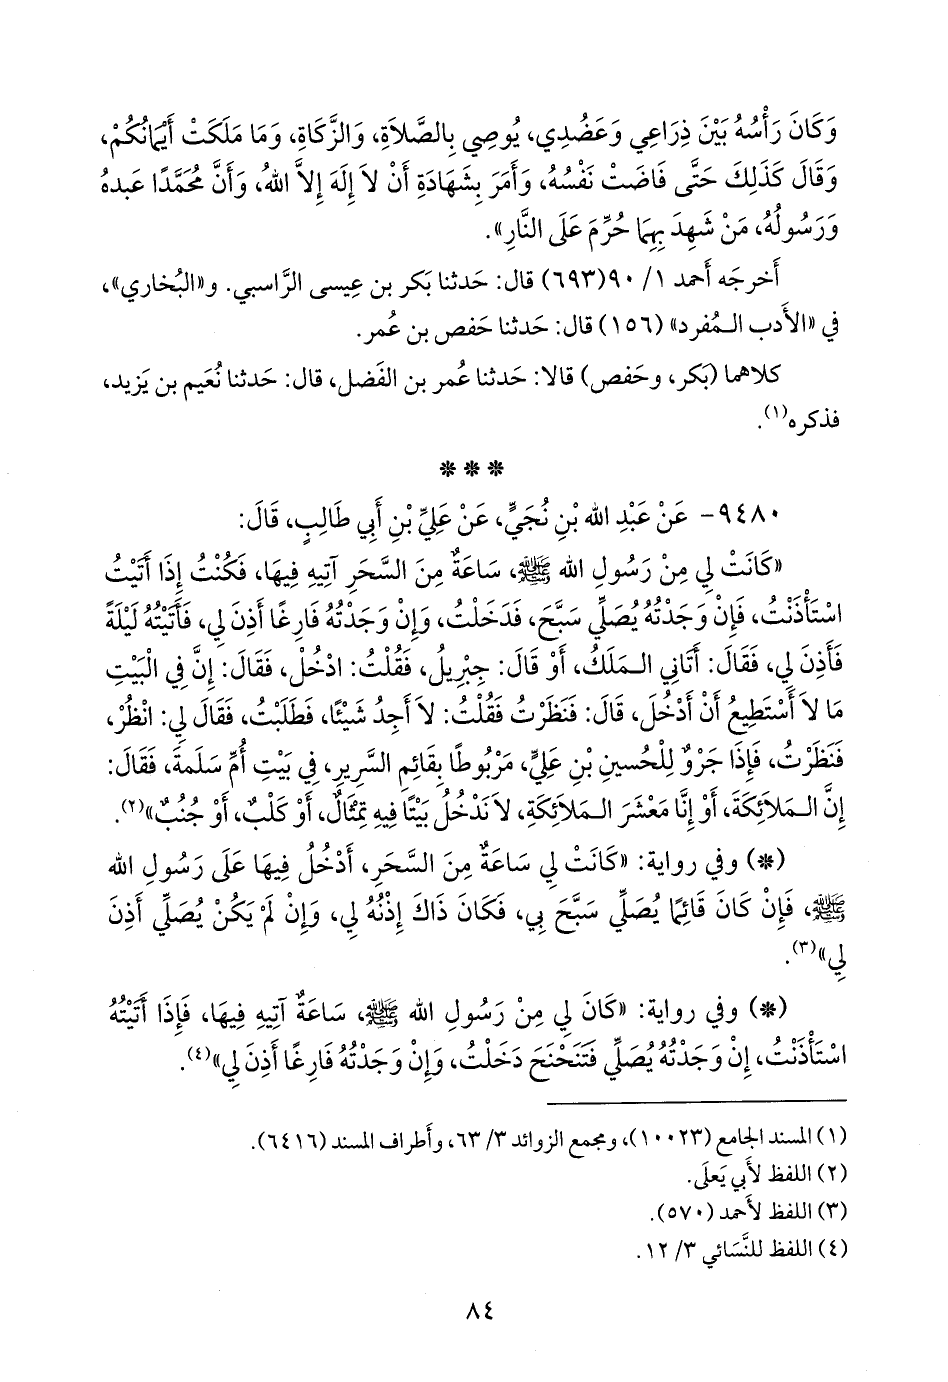 وَكَانَ رَأْسُهُ بَيْنَ ذِرَاعِي وَعَضُدِي، يُوصِي بِالصَّلاَةِ، وَالزَّكَاةِ، وَمَا مَلَكَتْ أَيْمَانُكُمْ،
وَقَالَ كَذَلِكَ حَتَّى فَاضَتْ نَفْسُهُ، وَأَمَرَ بِشَهَادَةِ أَنْ لاَ إِلَهَ إِلاَّ اللهُ، وَأَنَّ مُحَمَّدًا عَبدهُ
وَرَسُولُهُ، مَنْ شَهِدَ بِهِمَا حُرِّمَ عَلَى النَّارِ».
أَخرجَه أَحمد ١/ ٩٠(٦٩٣) قال: حَدثنا بَكر بن عِيسى الرَّاسبي. و«البُخاري»،
في «الأَدب المُفرد» (١٥٦) قال: حَدثنا حَفص بن عُمر.
كلاهما (بَكر، وحَفص) قالا: حَدثنا عُمر بن الفَضل، قال: حَدثنا نُعَيم بن يَزيد،
فذكره(١).
* * *
٩٤٨٠- عَنْ عَبْدِ اللهِ بْنِ نُجَيٍّ، عَنْ عَلِيِّ بْنِ أَبِي طَالِبٍ، قَالَ:
«كَانَتْ لِي مِنْ رَسُولِ اللهِ ﷺ، سَاعَةٌ مِنَ السَّحَرِ آتِيهِ فِيهَا، فَكُنْتُ إِذَا أَتَيْتُ
اسْتَأْذَنْتُ، فَإِنْ وَجَدْتُهُ يُصَلِّي سَبَّحَ، فَدَخَلْتُ، وَإِنْ وَجَدْتُهُ فَارِغًا أَذِنَ لِي، فَأَتَيْتُهُ لَيْلَةً
فَأَذِنَ لِي، فَقَالَ: أَتَانِي الـمَلَكُ، أَوْ قَالَ: جِبْرِيلُ، فَقُلْتُ: ادْخُلْ، فَقَالَ: إِنَّ فِي الْبَيْتِ
مَا لاَ أَسْتَطِيعُ أَنْ أَدْخُلَ، قَالَ: فَنَظَرْتُ فَقُلْتُ: لاَ أَجِدُ شَيْئًا، فَطَلَبْتُ، فَقَالَ لِي: انْظُرْ،
فَنَظَرْتُ، فَإِذَا جَرْوٌ لِلْحُسينِ بْنِ عَلِيٍّ، مَرْبُوطًا بِقَائِمِ السَّرِيرِ، فِي بَيْتِ أُمِّ سَلَمةَ، فَقَالَ:
إِنَّ الـمَلاَئِكَةَ، أَوْ إِنَّا مَعْشَرَ الـمَلاَئِكَةِ، لاَ نَدْخُلُ بَيْتًا فِيهِ تِمْثَالٌ، أَوْ كَلْبٌ، أَوْ جُنُبٌ»(٢).
(*) وفي رواية: «كَانَتْ لِي سَاعَةٌ مِنَ السَّحَرِ، أَدْخُلُ فِيهَا عَلَى رَسُولِ اللهِ
ﷺ، فَإِنْ كَانَ قَائِمًا يُصَلِّي سَبَّحَ بِي، فَكَانَ ذَاكَ إِذْنُهُ لِي، وَإِنْ لَمْ يَكُنْ يُصَلِّي أَذِنَ
لِي»(٣).
(*) وفي رواية: «كَانَ لِي مِنْ رَسُولِ اللهِ ﷺ، سَاعَةٌ آتِيهِ فِيهَا، فَإِذَا أَتَيْتُهُ
اسْتَأْذَنْتُ، إِنْ وَجَدْتُهُ يُصَلِّي فَتَنَحْنَحَ دَخَلْتُ، وَإِنْ وَجَدْتُهُ فَارِغًا أَذِنَ لِي»(٤).
(١) المسند الجامع (١٠٠٢٣)، ومجمع الزوائد ٣/ ٦٣، وأطراف المسند (٦٤١٦).
(٢) اللفظ لأَبي يَعلَى.
(٣) اللفظ لأحمد (٥٧٠).
(٤) اللفظ للنَّسَائي ٣/ ١٢.
٨٤